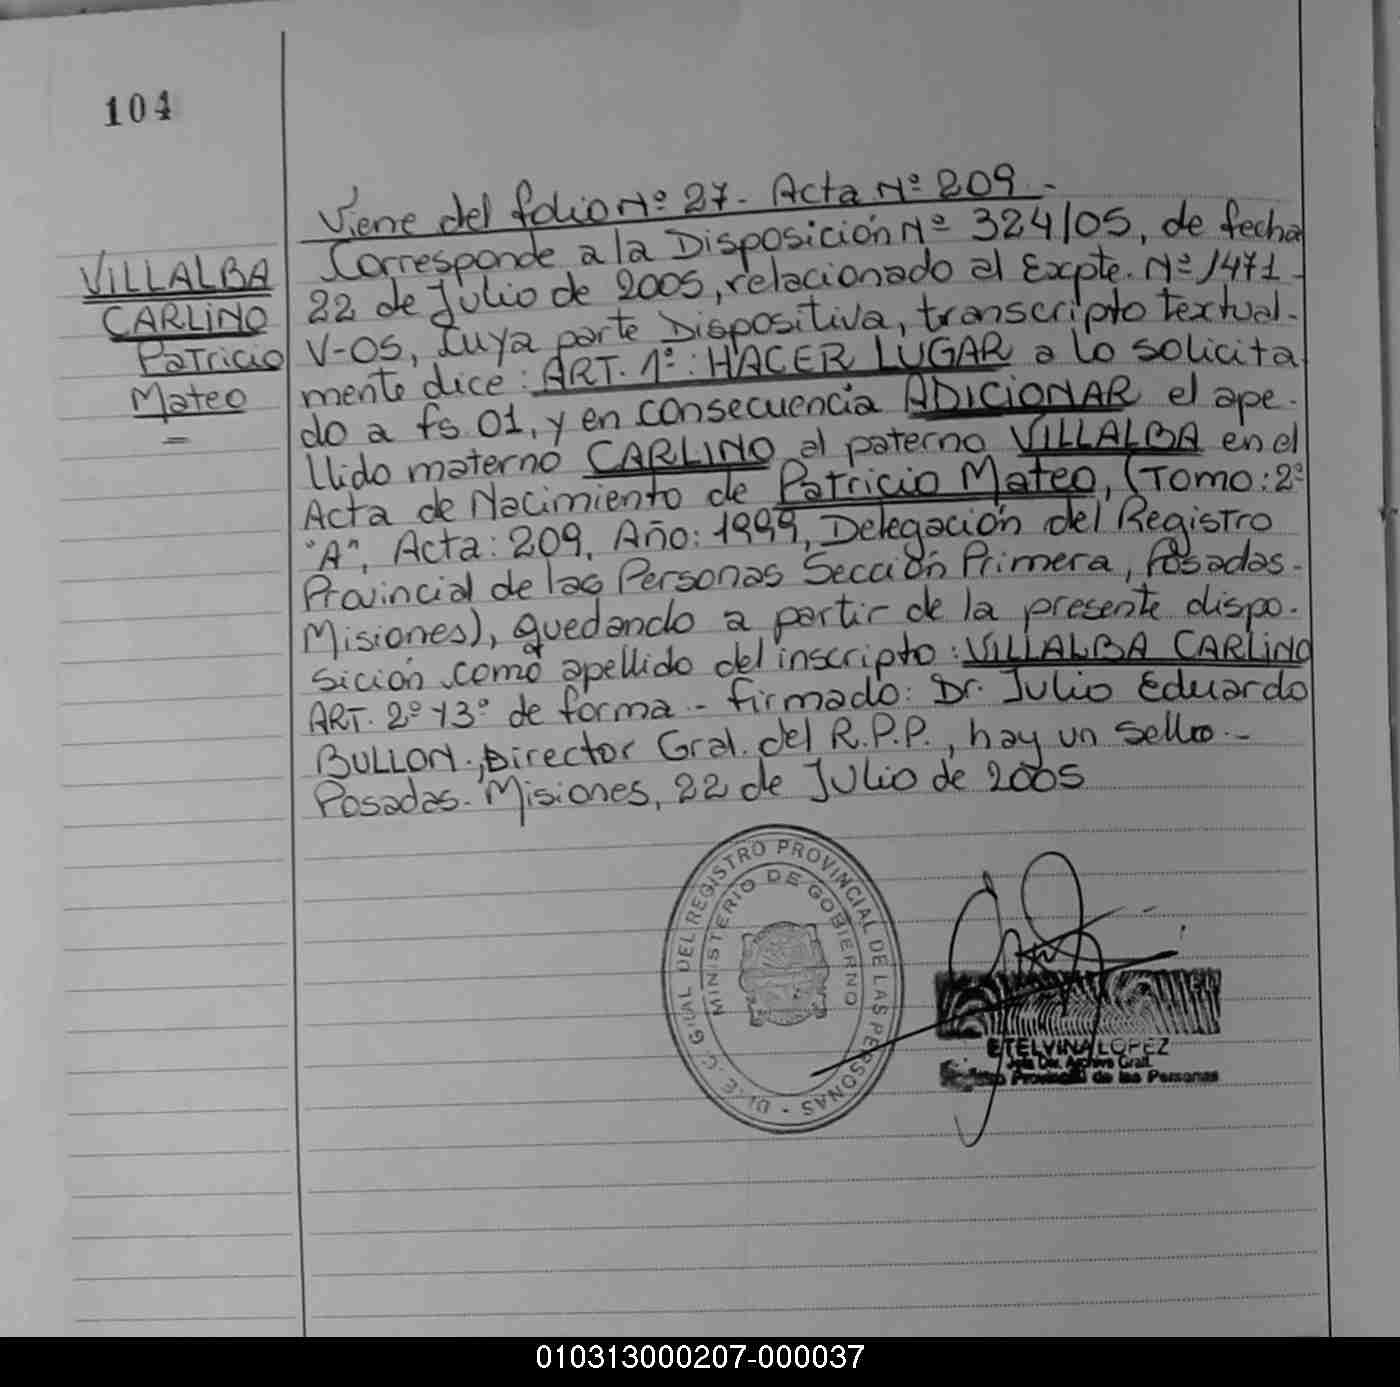 104
VILLALBA
CARLINO
Patricio
Mateo
Viene del folio Nº 27.- Acta Nº 209.-
Corresponde a la Disposición Nº 324/05, de fecha
22 de Julio de 2005, relacionado al Expte. Nº 1471-
V-05, cuya parte Dispositiva, transcripto textual-
mente dice: ART. 1º: HACER LUGAR a lo solicita
do a fs 01, y en consecuencia ADICIONAR el ape-
llido materno CARLINO al paterno VILLALBA en el
Acta de Nacimiento de Patricio Mateo, (Tomo: 2º
"A", Acta: 209, Año: 1999, Delegación del Registro
Provincial de las Personas Sección Primera, Posadas-
Misiones), quedando a partir de la presente dispo-
sición como apellido del inscripto: VILLALBA CARLINO
ART. 2º y 3º de forma.- firmado: Dr. Julio Eduardo
BULLON., Director Gral. del R.P.P., hay un sello.-
Posadas. Misiones, 22 de Julio de 2005
GRAL DEL REGISTRO PROVINCIAL DE LAS PERSONAS
MINISTERIO DE GOBIERNO
ETELVINA LOPEZ
Jefa Archivo Gral.
Provincial de las Personas
010313000207-000037